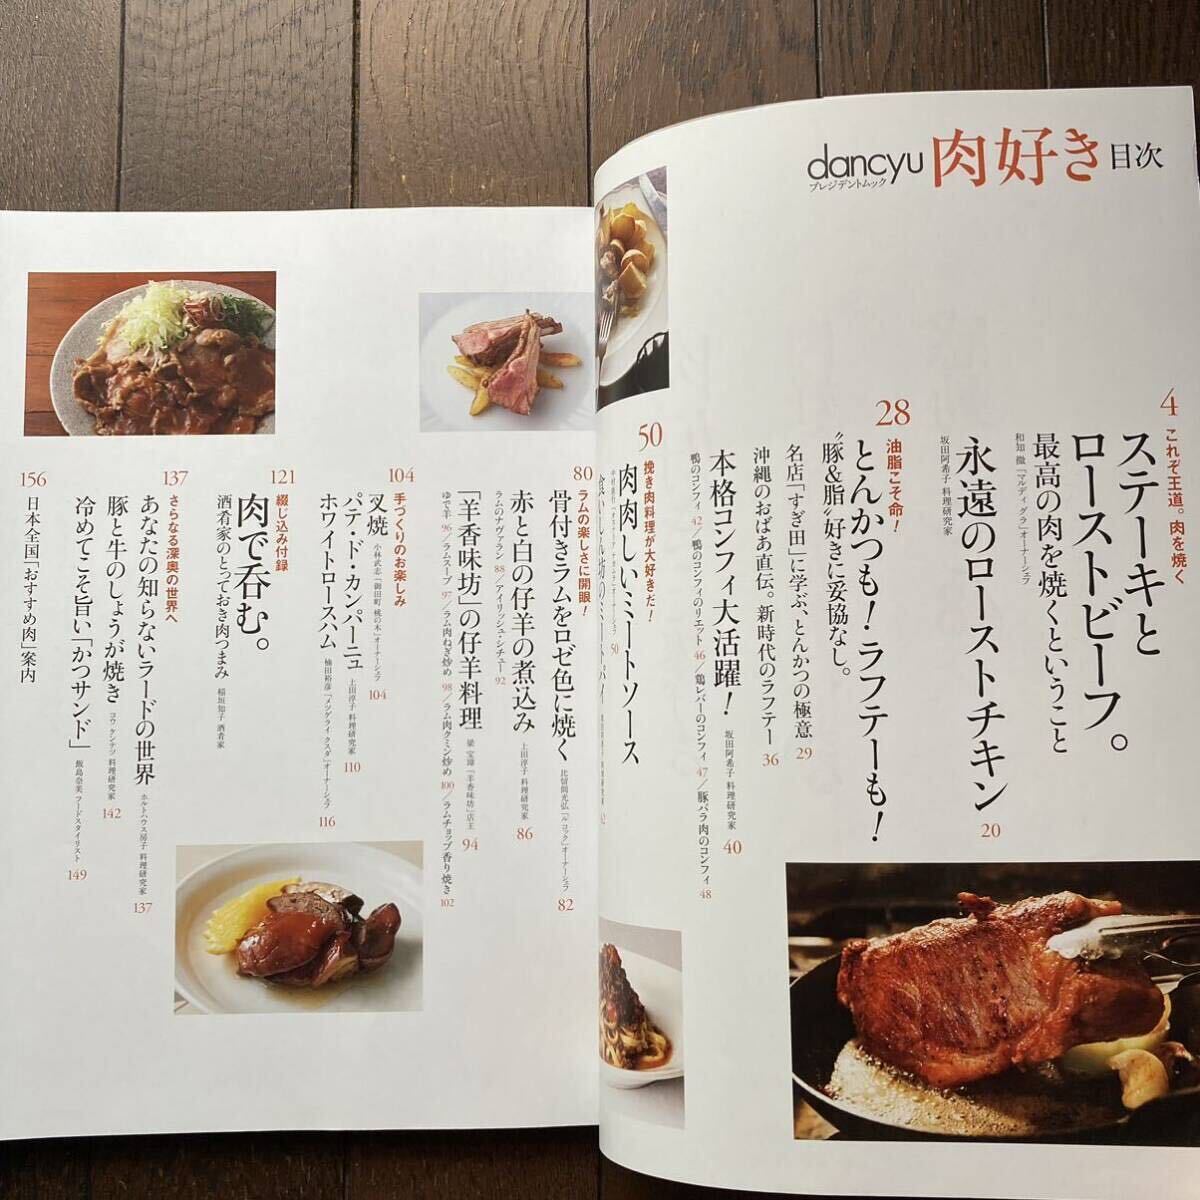 dancyu
プレジデントムック
肉好き
目次
4
これぞ王道。肉を焼く
ステーキと
ローストビーフ。
最高の肉を焼くということ
和知 徹「マルディ グラ」オーナーシェフ
永遠のローストチキン
坂田阿希子 料理研究家
20
28
油脂こそ命!
とんかつも!ラフテーも!
“豚&脂”好きに妥協なし。
名店「すぎ田」に学ぶ、とんかつの極意
29
沖縄のおばあ直伝。新時代のラフテー
36
本格コンフィ大活躍!
坂田阿希子 料理研究家
40
鴨のコンフィ 42/鴨のコンフィのリエット 46/鶏レバーのコンフィ 47/豚バラ肉のコンフィ 48
50
挽き肉料理が大好きだ!
肉肉しいミートソース
50
62
80
ラムの楽しさに開眼!
骨付きラムをロゼ色に焼く
比留間光弘「ル コック」オーナーシェフ
82
赤と白の仔羊の煮込み
上田淳子 料理研究家
86
ラムのナヴァラン 88/アイリッシュ・シチュー 92
「羊香味坊」の仔羊料理
梁 宝璋「羊香味坊」店主
94
ゆで羊 96/ラムスープ 97/ラム肉ねぎ炒め 98/ラム肉クミン炒め 100/ラムチョップ香り焼き 102
104
手づくりのお楽しみ
叉焼
小林武志「御田町 桃の木」オーナーシェフ
104
パテ・ド・カンパーニュ
上田淳子 料理研究家
110
ホワイトロースハム
楠田裕彦「メツゲライ クスダ」オーナーシェフ
116
121
綴じ込み付録
肉で呑む。
酒肴家のとっておき肉つまみ
稲垣知子 酒肴家
137
さらなる深奥の世界へ
あなたの知らないラードの世界
ホルトハウス房子 料理研究家
137
豚と牛のしょうが焼き
コウ ケンテツ 料理研究家
142
冷めてこそ旨い「かつサンド」
飯島奈美 フードスタイリスト
149
156
日本全国「おすすめ肉」案内